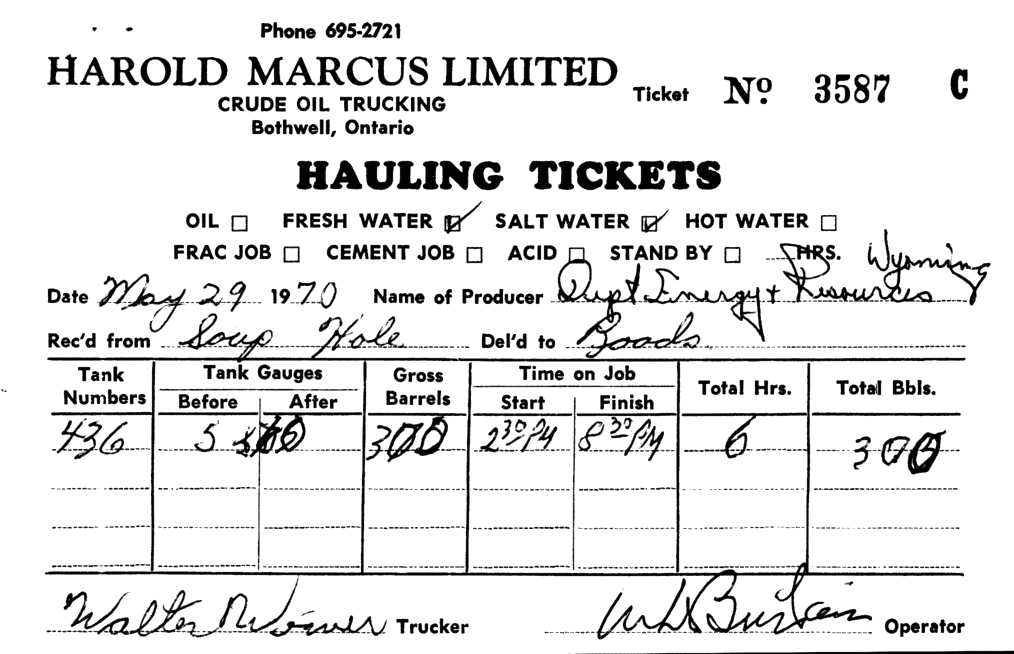 Phone 695-2721
HAROLD MARCUS LIMITED Ticket Nº 3587 C
CRUDE OIL TRUCKING
Bothwell, Ontario
HAULING TICKETS
OIL ☐ FRESH WATER ☑ SALT WATER ☑ HOT WATER ☐
FRAC JOB ☐ CEMENT JOB ☐ ACID ☐ STAND BY ☐ HRS. Wyoming
Date May 29 1970 Name of Producer Dept Energy + Resources
Rec'd from Soup Hole Del'd to Roads
Tank Numbers Tank Gauges Gross Barrels Time on Job Total Hrs. Total Bbls.
Before After Start Finish
436 5 300 2 30 PM 8 30 PM 6 300
Walter Trucker Operator